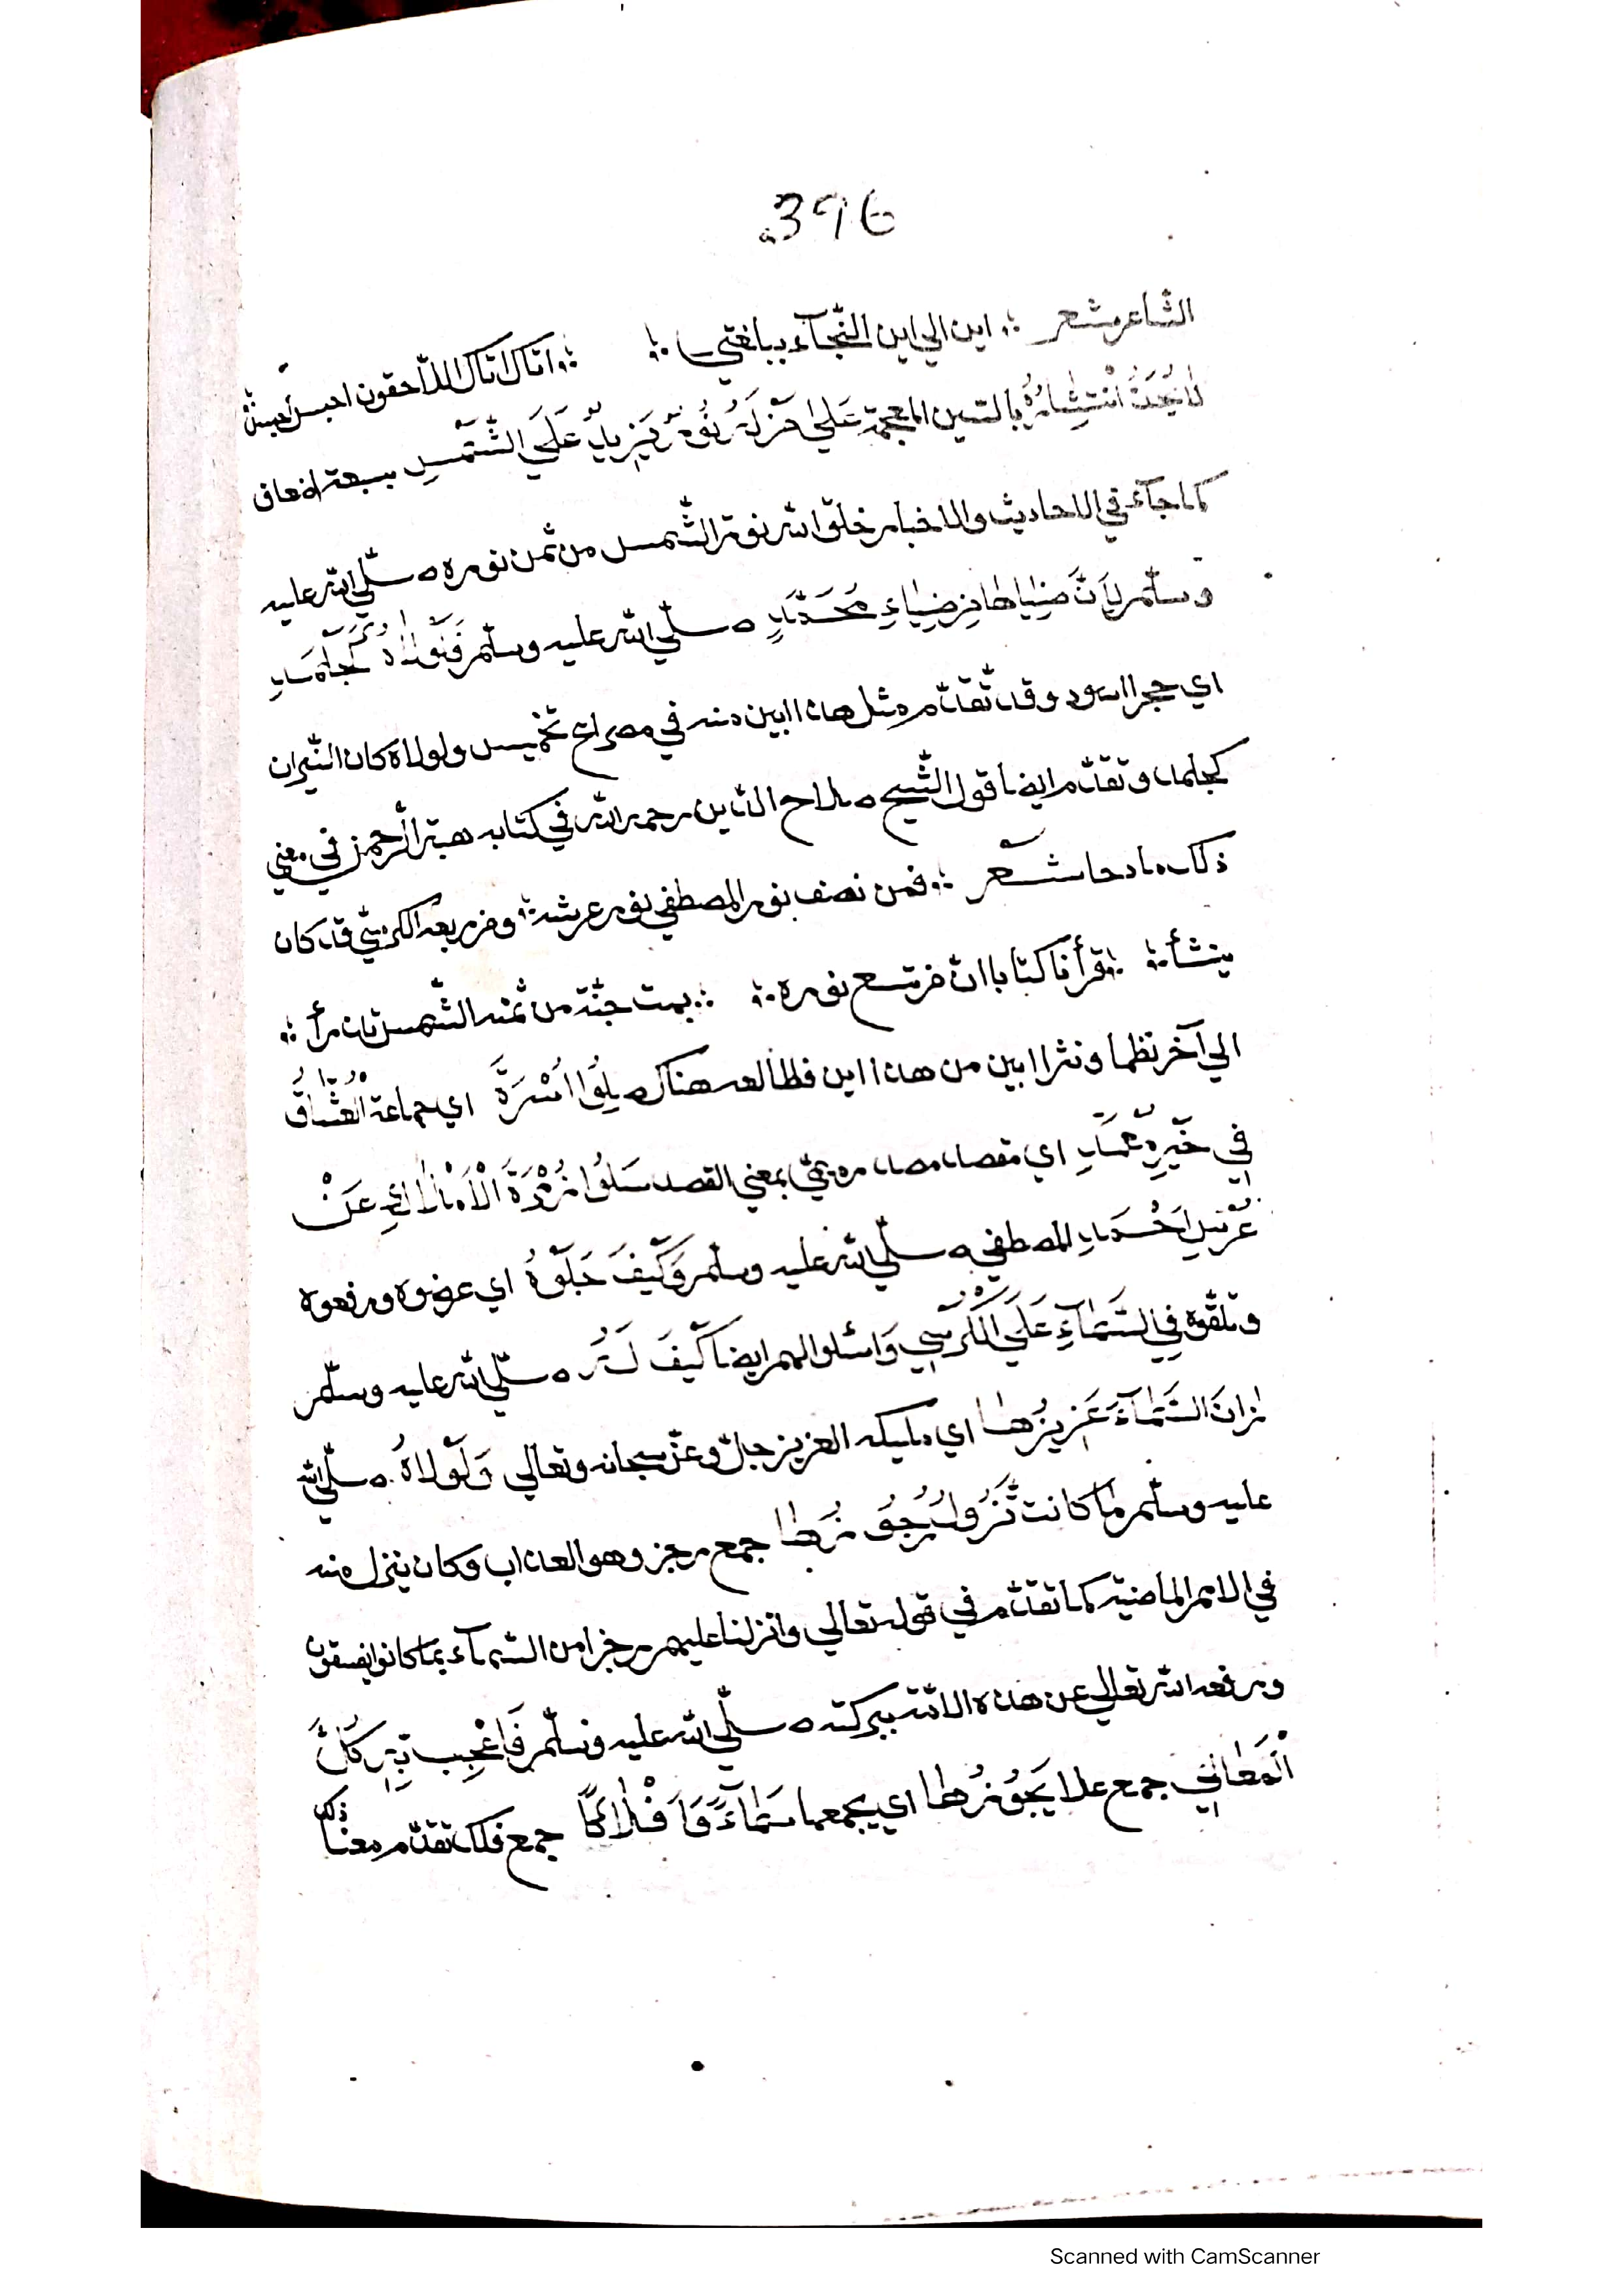 396
الشاعر شعر ؞ اين الي اين النجآء ببلغتي ؞ ؞ اتاك اتاك اللاحقون احبس احبس ؞
انتشاره بالشين المعجمة علي نور يزيد علي الشمس بسبعة اضعاف
كما جآء في الاحاديث والاخبار خلق الله نور الشمس من ثمن نوره صلّي الله عليه
وسلّم لِأَنَّ ضِيَاهَا مِن ضِيَاءِ مُحَمَّدٍ صلّي الله عليه وسلّم فَلَوْلَاهُ كَجَلْمَدِ
اي حجر اسود وقد تقدّم مثل هذا ابين منه في مصراع تخميس ولولاه كان النيران
كجلمد وتقدّم ايضا قول الشّيخ صلاح الدّين رحمه الله في كتابه هبة الرّحمن في معني
ذلك مادحا شعر ؞ فمن نصف نور المصطفي نور عرشه ؞ ومن ربعه الكرسيّ قد كان
ينشأ ؞ ؞ قرأنا كتابا انّ من تسع نوره ؞ ؞ بدت جنّة من ثمنه الشّمس تدرأ ؞
الي آخر نظما ونثرا ابين من هذا اين فطالعه هناك صِلُوا اُسْرَةَ اي جماعة الْعُشَّاقِ
فِي خَيْرِ عَمْدِ اي مقصد مصدر بمعني القصد سَلُوا زُمْرَةَ الْأَمْلَاكِ عَنْ
عُرْسِ اَحْمَدِ المصطفي صلّي الله عليه وسلّم وَكَيْفَ جَلَوْهُ اي عرضوه ورفعوه
وتلقّوه فِي السَّمَآءِ عَلَي الْكُرْسِي وَاسئلوا لهم ايضا كَيْفَ صلّي الله عليه وسلّم
زَانَ السَّمَآءَ عَزِيزُهَا اي مليكه العزيز جلّ وعزّ سبحانه وتعالي وَلَوْلَاهُ صلّي الله
عليه وسلّم مَا كانت تَزُولُ رُجُوزُهَا جمع رجز وهو العذاب وكان ينزل منه
في الامم الماضية كما تقدّم في قوله تعالي وانزلنا عليهم رجزا من السّمآء بما كانوا يفسقون
ورفعه الله تعالي عن هذه الامّة ببركته صلّي الله عليه وسلّم فَاعْجِب بِهِ كُلَّ
الْمَعَالِي جمع علا يَحُوزُهَا اي يجمعها سَمَآءً وَاَفْلَاكًا جمع فلك تقدّم معناه ذلك
Scanned with CamScanner